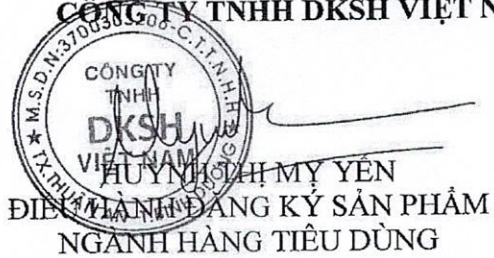 CÔNG TY TNHH DKSH VIỆT N
M.S.D.N:3700303206-C.T.T.N.H.H
CÔNG TY
TNHH
DKSH
VIỆT NAM
HUỲNH THỊ MỸ YẾN
ĐIỀU HÀNH ĐĂNG KÝ SẢN PHẨM
NGÀNH HÀNG TIÊU DÙNG